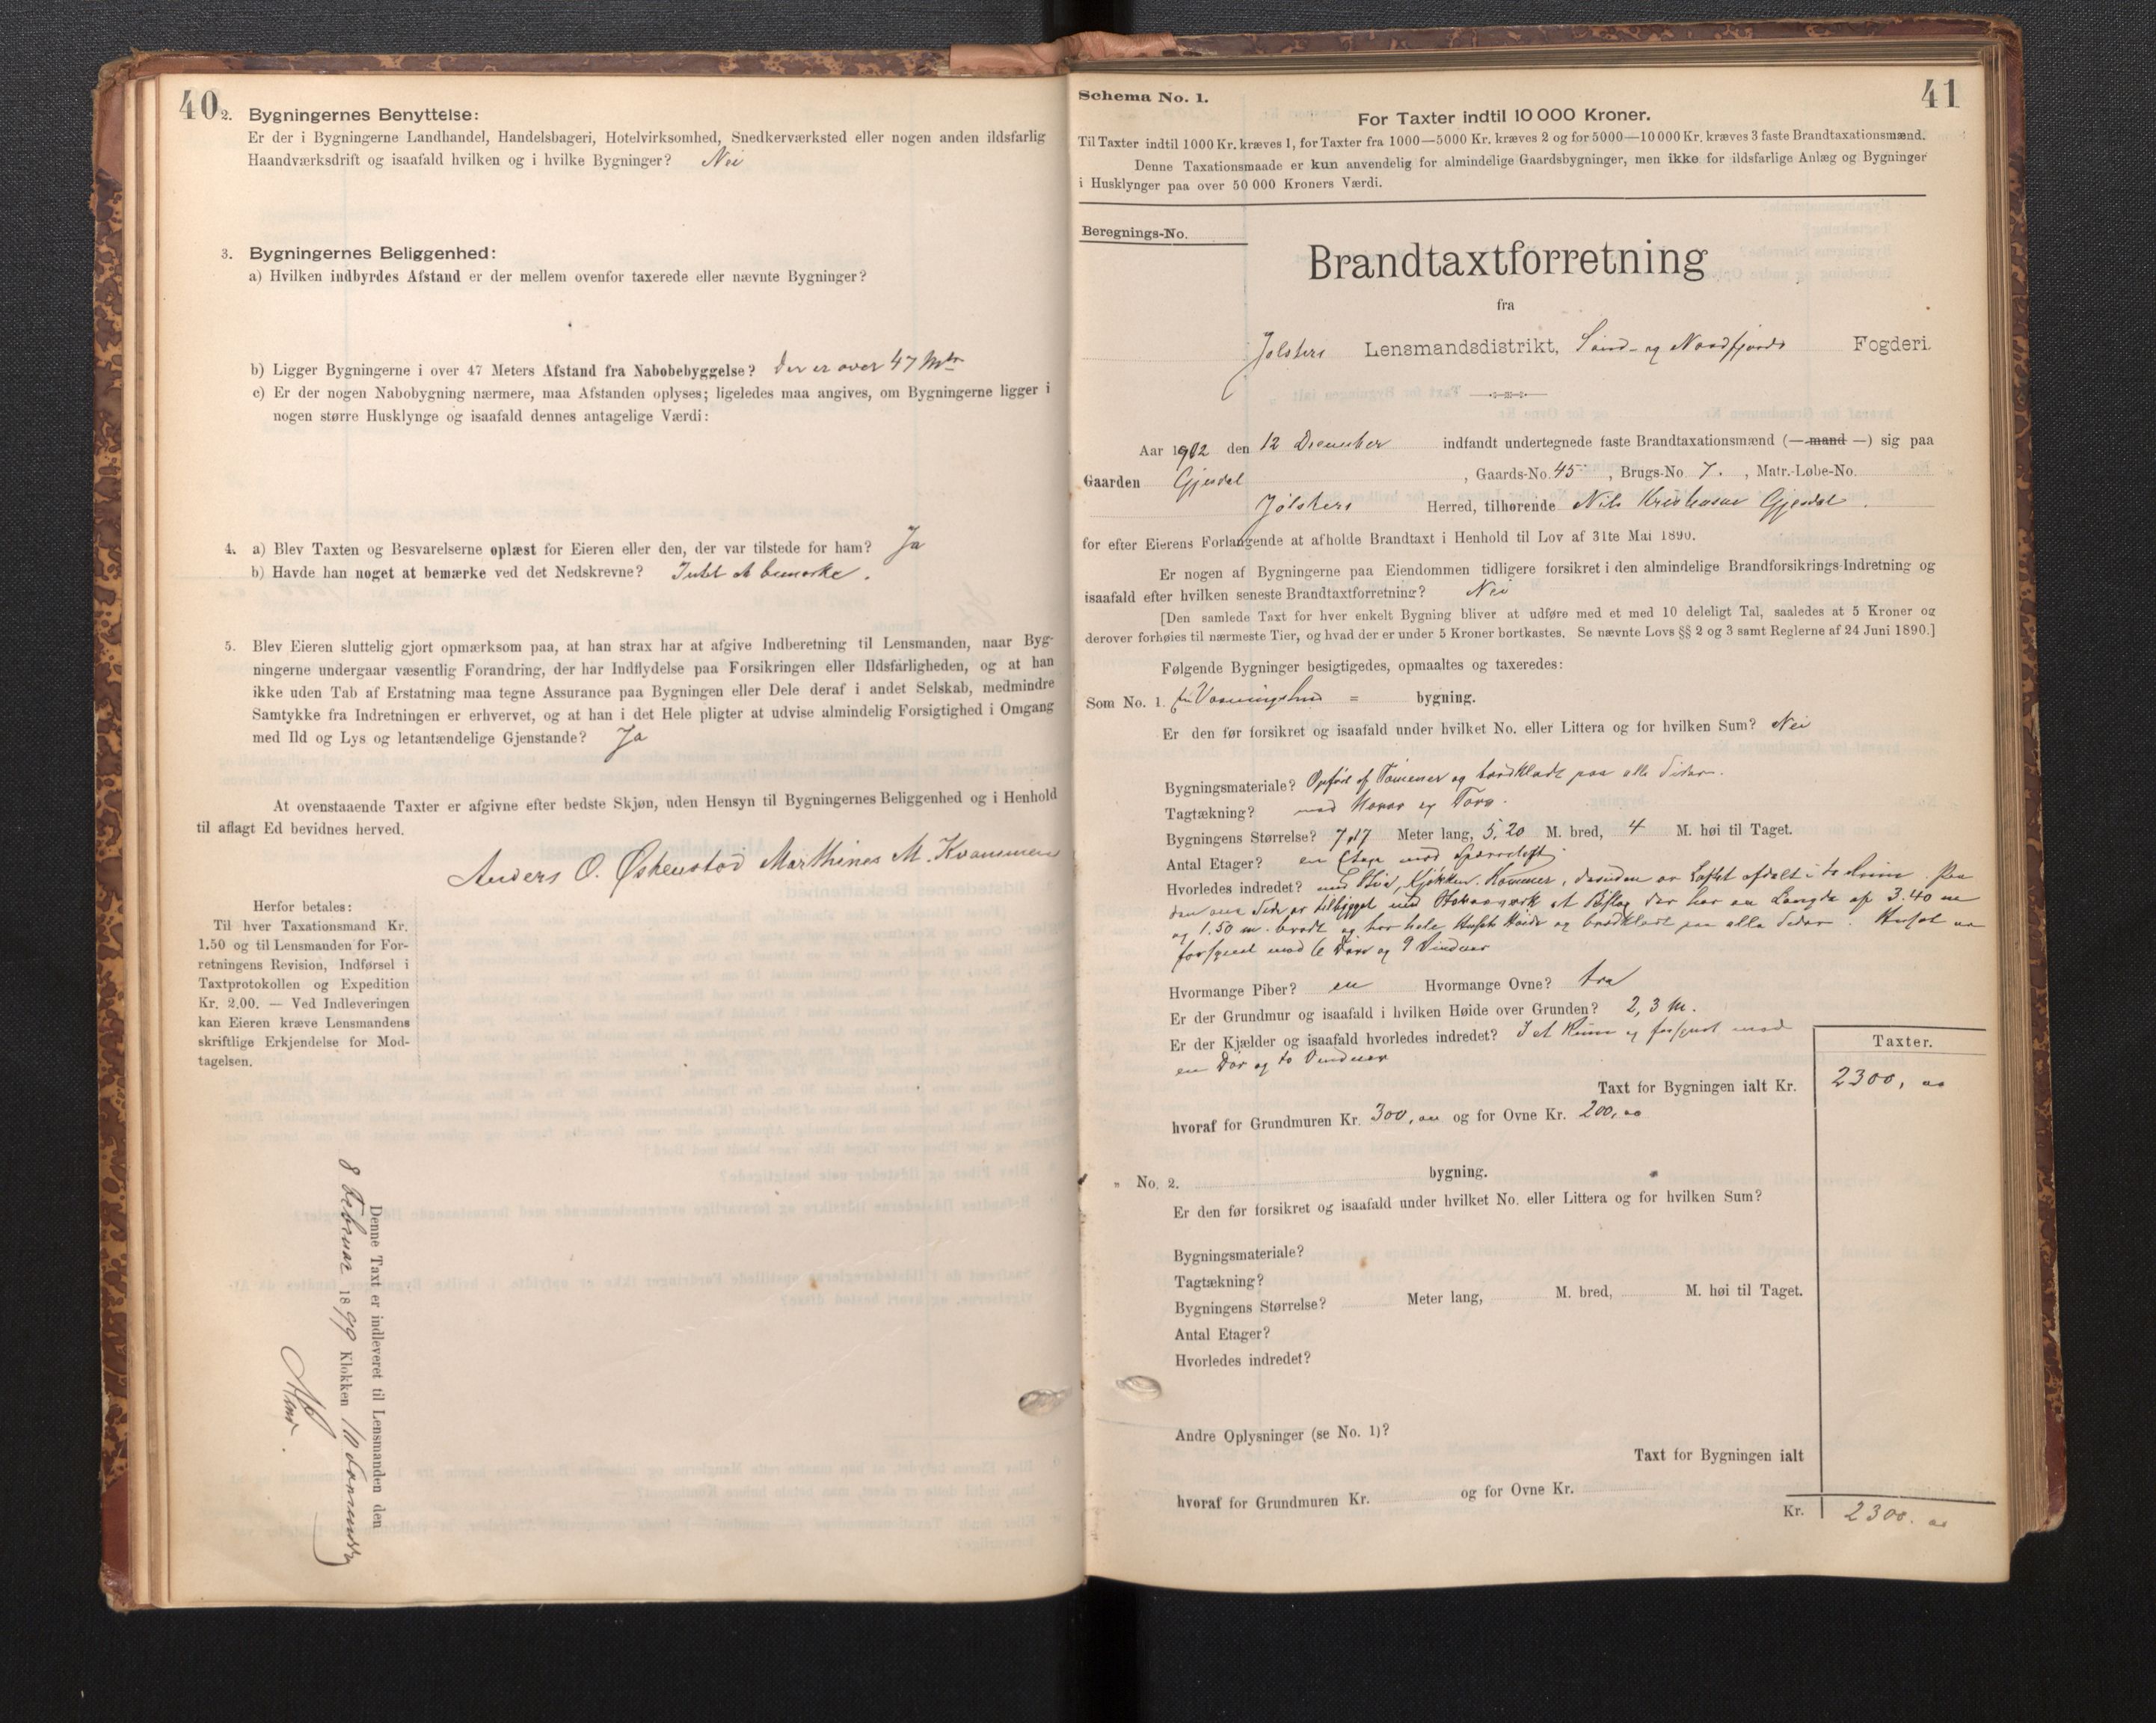 40
2. Bygningernes Benyttelse:
Er der i Bygningerne Landhandel, Handelsbageri, Hotelvirksomhed, Snedkerværksted eller nogen anden ildsfarlig
Haandværksdrift og isaafald hvilken og i hvilke Bygninger? Nei
3. Bygningernes Beliggenhed:
a) Hvilken indbyrdes Afstand er der mellem ovenfor taxerede eller nævnte Bygninger?
b) Ligger Bygningerne i over 47 Meters Afstand fra Nabobebyggelse? Der er over 47 Mtr
c) Er der nogen Nabobygning nærmere, maa Afstanden oplyses; ligeledes maa angives, om Bygningerne ligger i
nogen større Husklynge og isaafald dennes antagelige Værdi:
4. a) Blev Taxten og Besvarelserne oplæst for Eieren eller den, der var tilstede for ham? Ja
b) Havde han noget at bemærke ved det Nedskrevne? Intet at bemærke.
5. Blev Eieren sluttelig gjort opmærksom paa, at han strax har at afgive Indberetning til Lensmanden, naar Byg-
ningerne undergaar væsentlig Forandring, der har Indflydelse paa Forsikringen eller Ildsfarligheden, og at han
ikke uden Tab af Erstatning maa tegne Assurance paa Bygningen eller Dele deraf i andet Selskab, medmindre
Samtykke fra Indretningen er erhvervet, og at han i det Hele pligter at udvise almindelig Forsigtighed i Omgang
med Ild og Lys og letantændelige Gjenstande? Ja
At ovenstaaende Taxter er afgivne efter bedste Skjøn, uden Hensyn til Bygningernes Beliggenhed og i Henhold
til aflagt Ed bevidnes herved.
Anders O. Øskenstod Marthines M. Kvammen
Herfor betales:
Til hver Taxationsmand Kr.
1.50 og til Lensmanden for For-
retningens Revision, Indførsel i
Taxtprotokollen og Expedition
Kr. 2.00. — Ved Indleveringen
kan Eieren kræve Lensmandens
skriftlige Erkjendelse for Mod-
tagelsen.
Denne Taxt er indleveret til Lensmanden den
8 Februar 1899 Klokken 10
41
Schema No. 1.
For Taxter indtil 10 000 Kroner.
Til Taxter indtil 1000 Kr. kræves 1, for Taxter fra 1000—5000 Kr. kræves 2 og for 5000—10 000 Kr. kræves 3 faste Brandtaxationsmænd.
Denne Taxationsmaade er kun anvendelig for almindelige Gaardsbygninger, men ikke for ildsfarlige Anlæg og Bygninger
i Husklynger paa over 50 000 Kroners Værdi.
Beregnings-No.
Brandtaxtforretning
fra
Jølsters Lensmandsdistrikt, Sønd- og Nordfjords Fogderi.
Aar 1902 den 12 December indfandt undertegnede faste Brandtaxationsmænd (— mand —) sig paa
Gaarden Gjesdal, Gaards-No. 45, Brugs-No 7., Matr.-Løbe-No.
Jølsters Herred, tilhørende Nils Kristensen Gjesdal.
for efter Eierens Forlangende at afholde Brandtaxt i Henhold til Lov af 31te Mai 1890.
Er nogen af Bygningerne paa Eiendommen tidligere forsikret i den almindelige Brandforsikrings-Indretning og
isaafald efter hvilken seneste Brandtaxtforretning? Nei
[Den samlede Taxt for hver enkelt Bygning bliver at udføre med et med 10 deleligt Tal, saaledes at 5 Kroner og
derover forhøies til nærmeste Tier, og hvad der er under 5 Kroner bortkastes. Se nævnte Lovs §§ 2 og 3 samt Reglerne af 24 Juni 1890.]
Følgende Bygninger besigtigedes, opmaaltes og taxeredes:
Som No. 1. Vaaningshus = bygning.
Er den før forsikret og isaafald under hvilket No. eller Littera og for hvilken Sum? Nei
Bygningsmateriale? Opført af Tømmer og bordklædt paa alle Sider.
Tagtækning? med Næver og Torv.
Bygningens Størrelse? 7,17 Meter lang, 5,20 M. bred, 4 M. høi til Taget.
Antal Etager? en Etage med Sperreloft
Hvorledes indredet? med Stue, Kjøkken, Kammer, desuden er Loftet afdelt i to Rum. Paa
den ene Side er tilbygget med Stavværk et Bislag der har en Længde af 3.40 m
og 1.50 m. bredt og har hele Husets Høide og bordklædt paa alle Sider. Huset er
forsynet med 6 Døre og 9 Vinduer
Hvormange Piber? en Hvormange Ovne? tre
Er der Grundmur og isaafald i hvilken Høide over Grunden? 2,3 M.
Er der Kjælder og isaafald hvorledes indredet? I et Rum og forsynet med
en Dør og to Vinduer
Taxter.
Taxt for Bygningen ialt Kr. 2300, oo
hvoraf for Grundmuren Kr. 300, oo og for Ovne Kr. 200, oo
" No. 2. bygning.
Er den før forsikret og isaafald under hvilket No. eller Littera og for hvilken Sum?
Bygningsmateriale?
Tagtækning?
Bygningens Størrelse? Meter lang, M. bred, M. høi til Taget.
Antal Etager?
Hvorledes indredet?
Andre Oplysninger (se No. 1)?
Taxt for Bygningen ialt
hvoraf for Grundmuren Kr. og for Ovne Kr.
Kr. 2300. oo